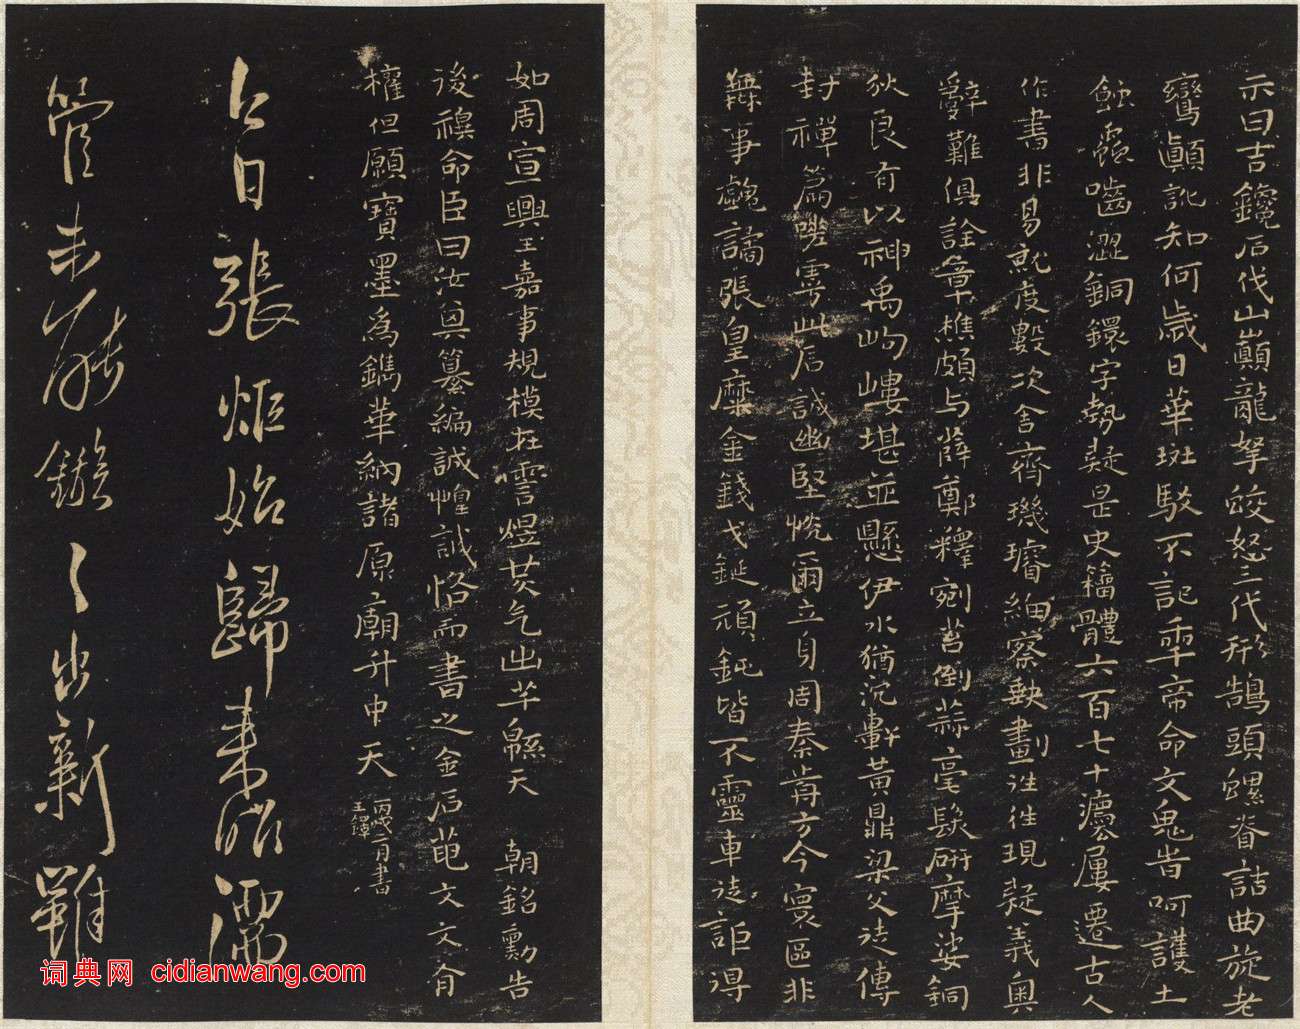 示曰吉鑱石伐山巔龍拏蛟怒三代形鵠頭螺脊詰曲旋老
鸞顛訛知何歲日華斑駁不記年帝命文鬼皆呵護土
蝕露嚙澀銅鐶字勢疑是史籀體六百七十屢遷古人
作書非易就度數次舍齊璣璿細察缺畫往往現疑義奧
辭難俱詮章樵頗與薛鄭釋剜苔倒薤毫髮研摩娑銅
狄良有以神禹岣嶁堪並懸伊水猶沉黃鼎梁父徒傳
封禪篇嗤此石誠幽堅恍爾立身周秦前方今寰區非
無事譎張皇麋金錢戈鋋頑鈍皆不靈車徒詎得
如周宣興王嘉事規模在雲煜芡气出芊綿天 朝銘勳告
後禩命臣曰汝其纂編誠惶誠恪而書之金石葩文文有
權但願寶墨為鐫華納諸原廟升中天 丙戌一月書
王鐸
占日張炬始歸來
管未能 出新
词典网 cidianwang.com